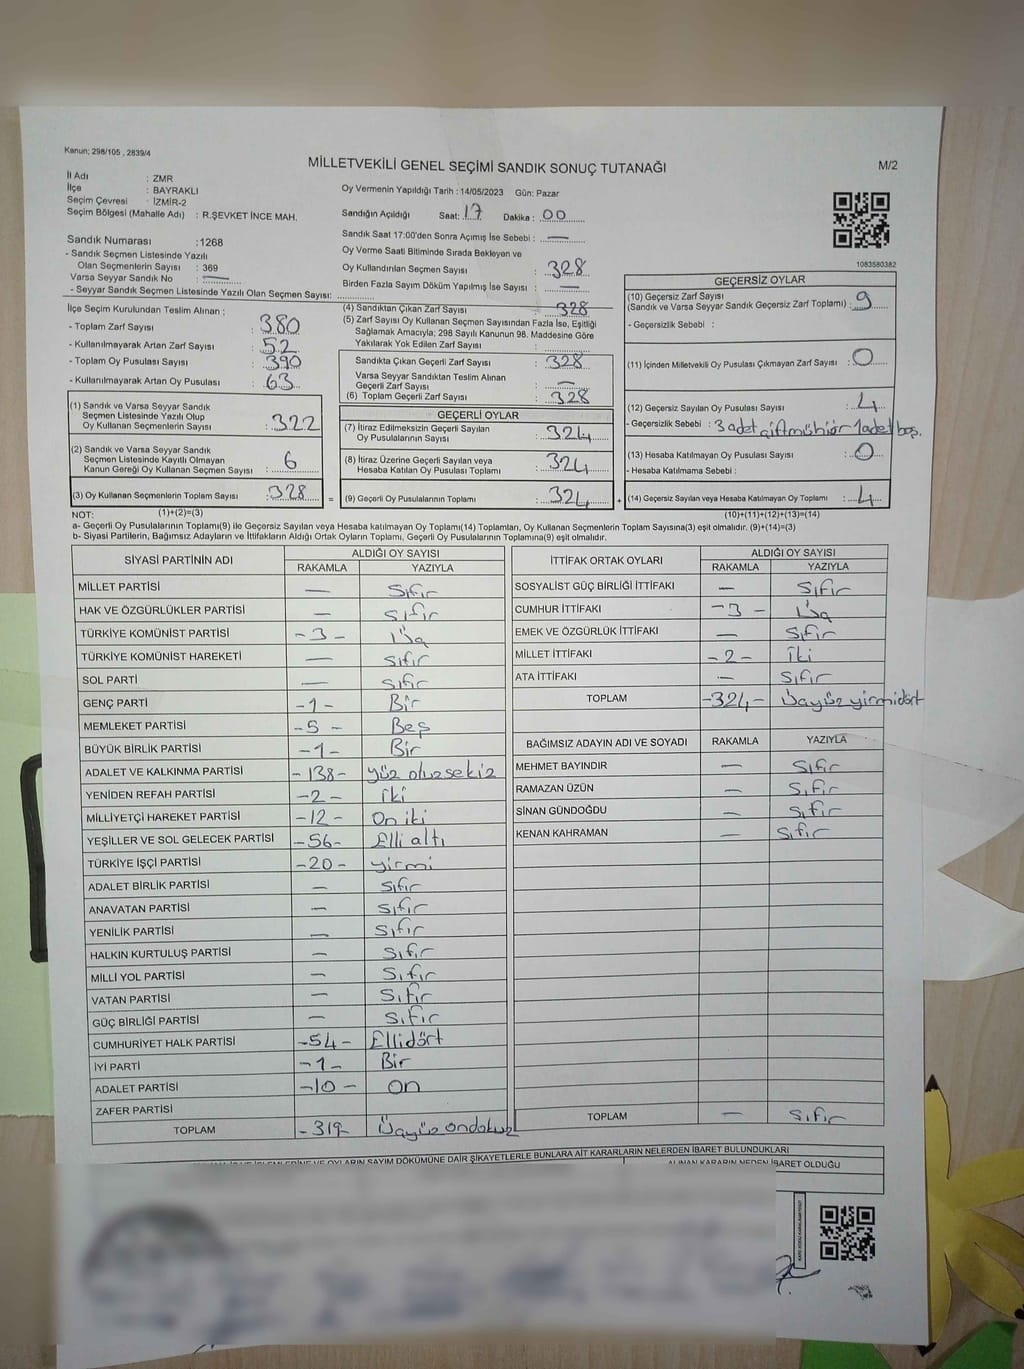 Kanun; 298/105 , 2839/4
MİLLETVEKİLİ GENEL SEÇİMİ SANDIK SONUÇ TUTANAĞI
M/2
İl Adı : ZMR
İlçe : BAYRAKLI
Seçim Çevresi : İZMİR-2
Seçim Bölgesi (Mahalle Adı) : R.ŞEVKET İNCE MAH.
Sandık Numarası :1268
- Sandık Seçmen Listesinde Yazılı
Olan Seçmenlerin Sayısı : 369
Varsa Seyyar Sandık No :
- Seyyar Sandık Seçmen Listesinde Yazılı Olan Seçmen Sayısı:
Oy Vermenin Yapıldığı Tarih : 14/05/2023 Gün: Pazar
Sandığın Açıldığı Saat: 17 Dakika : 00
Sandık Saat 17:00'den Sonra Açımış İse Sebebi : —
Oy Verme Saati Bitiminde Sırada Bekleyen ve
Oy Kullandırılan Seçmen Sayısı : 328
Birden Fazla Sayım Döküm Yapılmış İse Sayısı : —
1083580382
İlçe Seçim Kurulundan Teslim Alınan ;
- Toplam Zarf Sayısı : 380
- Kullanılmayarak Artan Zarf Sayısı : 52
- Toplam Oy Pusulası Sayısı : 390
- Kullanılmayarak Artan Oy Pusulası : 63
(1) Sandık ve Varsa Seyyar Sandık
Seçmen Listesinde Yazılı Olup
Oy Kullanan Seçmenlerin Sayısı : 322
(2) Sandık ve Varsa Seyyar Sandık
Seçmen Listesinde Kayıtlı Olmayan
Kanun Gereği Oy Kullanan Seçmen Sayısı : 6
(3) Oy Kullanan Seçmenlerin Toplam Sayısı : 328
(1)+(2)=(3)
(4) Sandıktan Çıkan Zarf Sayısı : 328
(5) Zarf Sayısı Oy Kullanan Seçmen Sayısından Fazla İse, Eşitliği
Sağlamak Amacıyla; 298 Sayılı Kanunun 98. Maddesine Göre
Yakılarak Yok Edilen Zarf Sayısı :
Sandıkta Çıkan Geçerli Zarf Sayısı : 328
Varsa Seyyar Sandıktan Teslim Alınan
Geçerli Zarf Sayısı : —
(6) Toplam Geçerli Zarf Sayısı : 328
GEÇERLİ OYLAR
(7) İtiraz Edilmeksizin Geçerli Sayılan
Oy Pusulalarının Sayısı : 324
(8) İtiraz Üzerine Geçerli Sayılan veya
Hesaba Katılan Oy Pusulası Toplamı : 324
= (9) Geçerli Oy Pusulalarının Toplamı : 324 +
GEÇERSİZ OYLAR
(10) Geçersiz Zarf Sayısı
(Sandık ve Varsa Seyyar Sandık Geçersiz Zarf Toplamı) : 9
- Geçersizlik Sebebi :
(11) İçinden Milletvekili Oy Pusulası Çıkmayan Zarf Sayısı : 0
(12) Geçersiz Sayılan Oy Pusulası Sayısı : 4
- Geçersizlik Sebebi : 3 adet çift mühür 1 adet boş.
(13) Hesaba Katılmayan Oy Pusulası Sayısı : 0
- Hesaba Katılmama Sebebi :
(14) Geçersiz Sayılan veya Hesaba Katılmayan Oy Toplamı : 4
(10)+(11)+(12)+(13)=(14)
NOT:
a- Geçerli Oy Pusulalarının Toplamı(9) ile Geçersiz Sayılan veya Hesaba katılmayan Oy Toplamı(14) Toplamları, Oy Kullanan Seçmenlerin Toplam Sayısına(3) eşit olmalıdır. (9)+(14)=(3)
b- Siyasi Partilerin, Bağımsız Adayların ve İttifakların Aldığı Ortak Oyların Toplamı, Geçerli Oy Pusulalarının Toplamına(9) eşit olmalıdır.
SİYASİ PARTİNİN ADI ALDIĞI OY SAYISI
RAKAMLA YAZIYLA
MİLLET PARTİSİ — Sıfır
HAK VE ÖZGÜRLÜKLER PARTİSİ — Sıfır
TÜRKİYE KOMÜNİST PARTİSİ -3- Üç
TÜRKİYE KOMÜNİST HAREKETİ — Sıfır
SOL PARTİ — Sıfır
GENÇ PARTİ -1- Bir
MEMLEKET PARTİSİ -5- Beş
BÜYÜK BİRLİK PARTİSİ -1- Bir
ADALET VE KALKINMA PARTİSİ -138- yüz otuzsekiz
YENİDEN REFAH PARTİSİ -2- iki
MİLLİYETÇİ HAREKET PARTİSİ -12- On iki
YEŞİLLER VE SOL GELECEK PARTİSİ -56- Elli altı
TÜRKİYE İŞÇİ PARTİSİ -20- yirmi
ADALET BİRLİK PARTİSİ — Sıfır
ANAVATAN PARTİSİ — Sıfır
YENİLİK PARTİSİ — Sıfır
HALKIN KURTULUŞ PARTİSİ — Sıfır
MİLLİ YOL PARTİSİ — Sıfır
VATAN PARTİSİ — Sıfır
GÜÇ BİRLİĞİ PARTİSİ — Sıfır
CUMHURİYET HALK PARTİSİ -54- Ellidört
İYİ PARTİ -1- Bir
ADALET PARTİSİ -10- On
ZAFER PARTİSİ
TOPLAM -319- Üçyüz ondokuz
İTTİFAK ORTAK OYLARI ALDIĞI OY SAYISI
RAKAMLA YAZIYLA
SOSYALİST GÜÇ BİRLİĞİ İTTİFAKI — Sıfır
CUMHUR İTTİFAKI -3- Üç
EMEK VE ÖZGÜRLÜK İTTİFAKI — Sıfır
MİLLET İTTİFAKI -2- İki
ATA İTTİFAKI — Sıfır
TOPLAM -324- Üçyüz yirmidört
BAĞIMSIZ ADAYIN ADI VE SOYADI RAKAMLA YAZIYLA
MEHMET BAYINDIR — Sıfır
RAMAZAN ÜZÜN — Sıfır
SİNAN GÜNDOĞDU — Sıfır
KENAN KAHRAMAN — Sıfır
TOPLAM — Sıfır
OYLARIN SAYIM DÖKÜMÜNE DAİR ŞİKAYETLERLE BUNLARA AİT KARARLARIN NELERDEN İBARET BULUNDUKLARI
ALINAN KARARIN NEDEN İBARET OLDUĞU